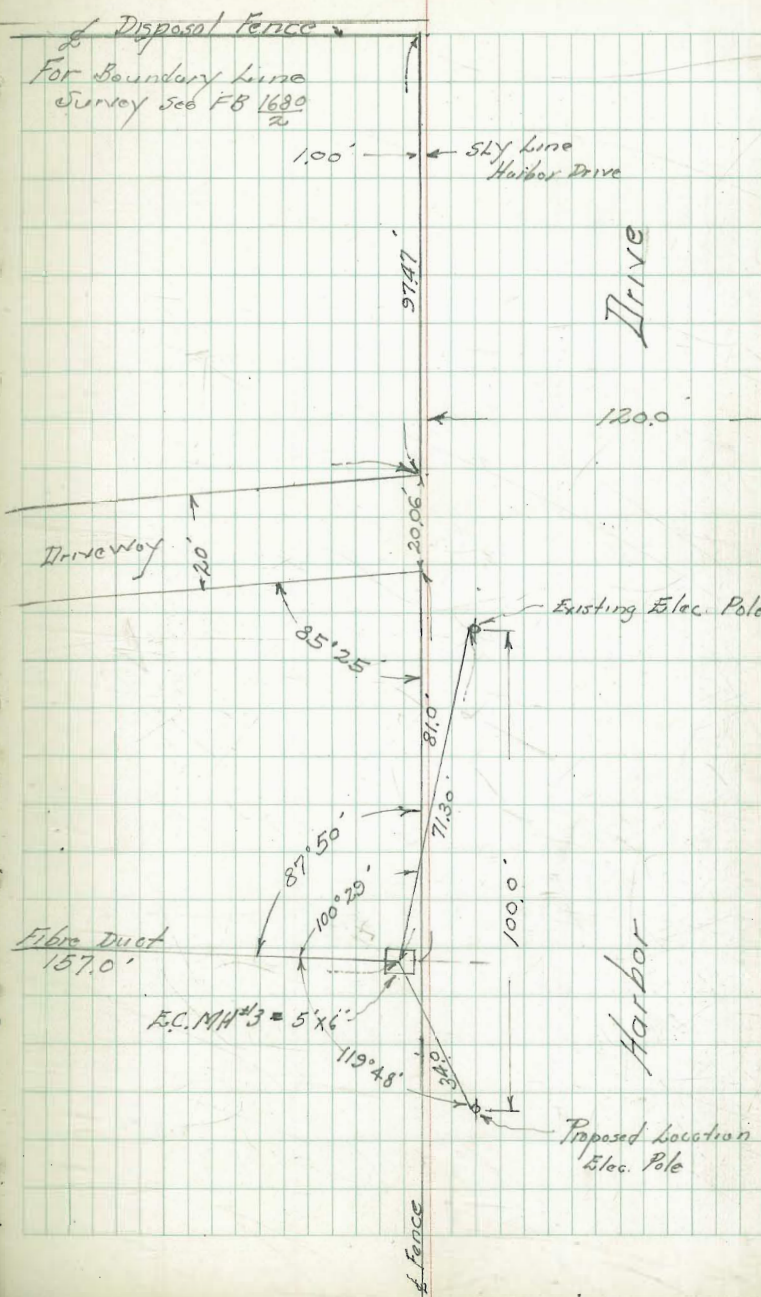 ℄ Disposal Fence
For Boundary Line
Survey See FB 1680/2
1.00'
SLY Line
Harbor Drive
97.47'
Drive
120.0'
20.06'
Driveway
20'
Existing Elec. Pole
85°25'
81.0'
71.30'
87°50'
100°29'
100.0'
Fibre Duct
157.0'
E.C. MH #3 = 5'x6'
Harbor
119°48'
34.0'
Proposed Location
Elec. Pole
℄ Fence